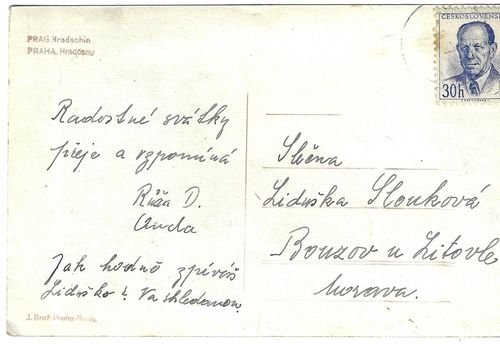 PRAG. Hradschin
PRAHA. Hradčany
ČESKOSLOVENSK
30h
Radostné svátky
přeje a vzpomíná
Růža D.
Anda
Jak hodně zpíváš
Liduško? Na shledanou
Slečna
Liduška Slouková
Bouzov u Litovle
Morava.
J. Brož, Praha